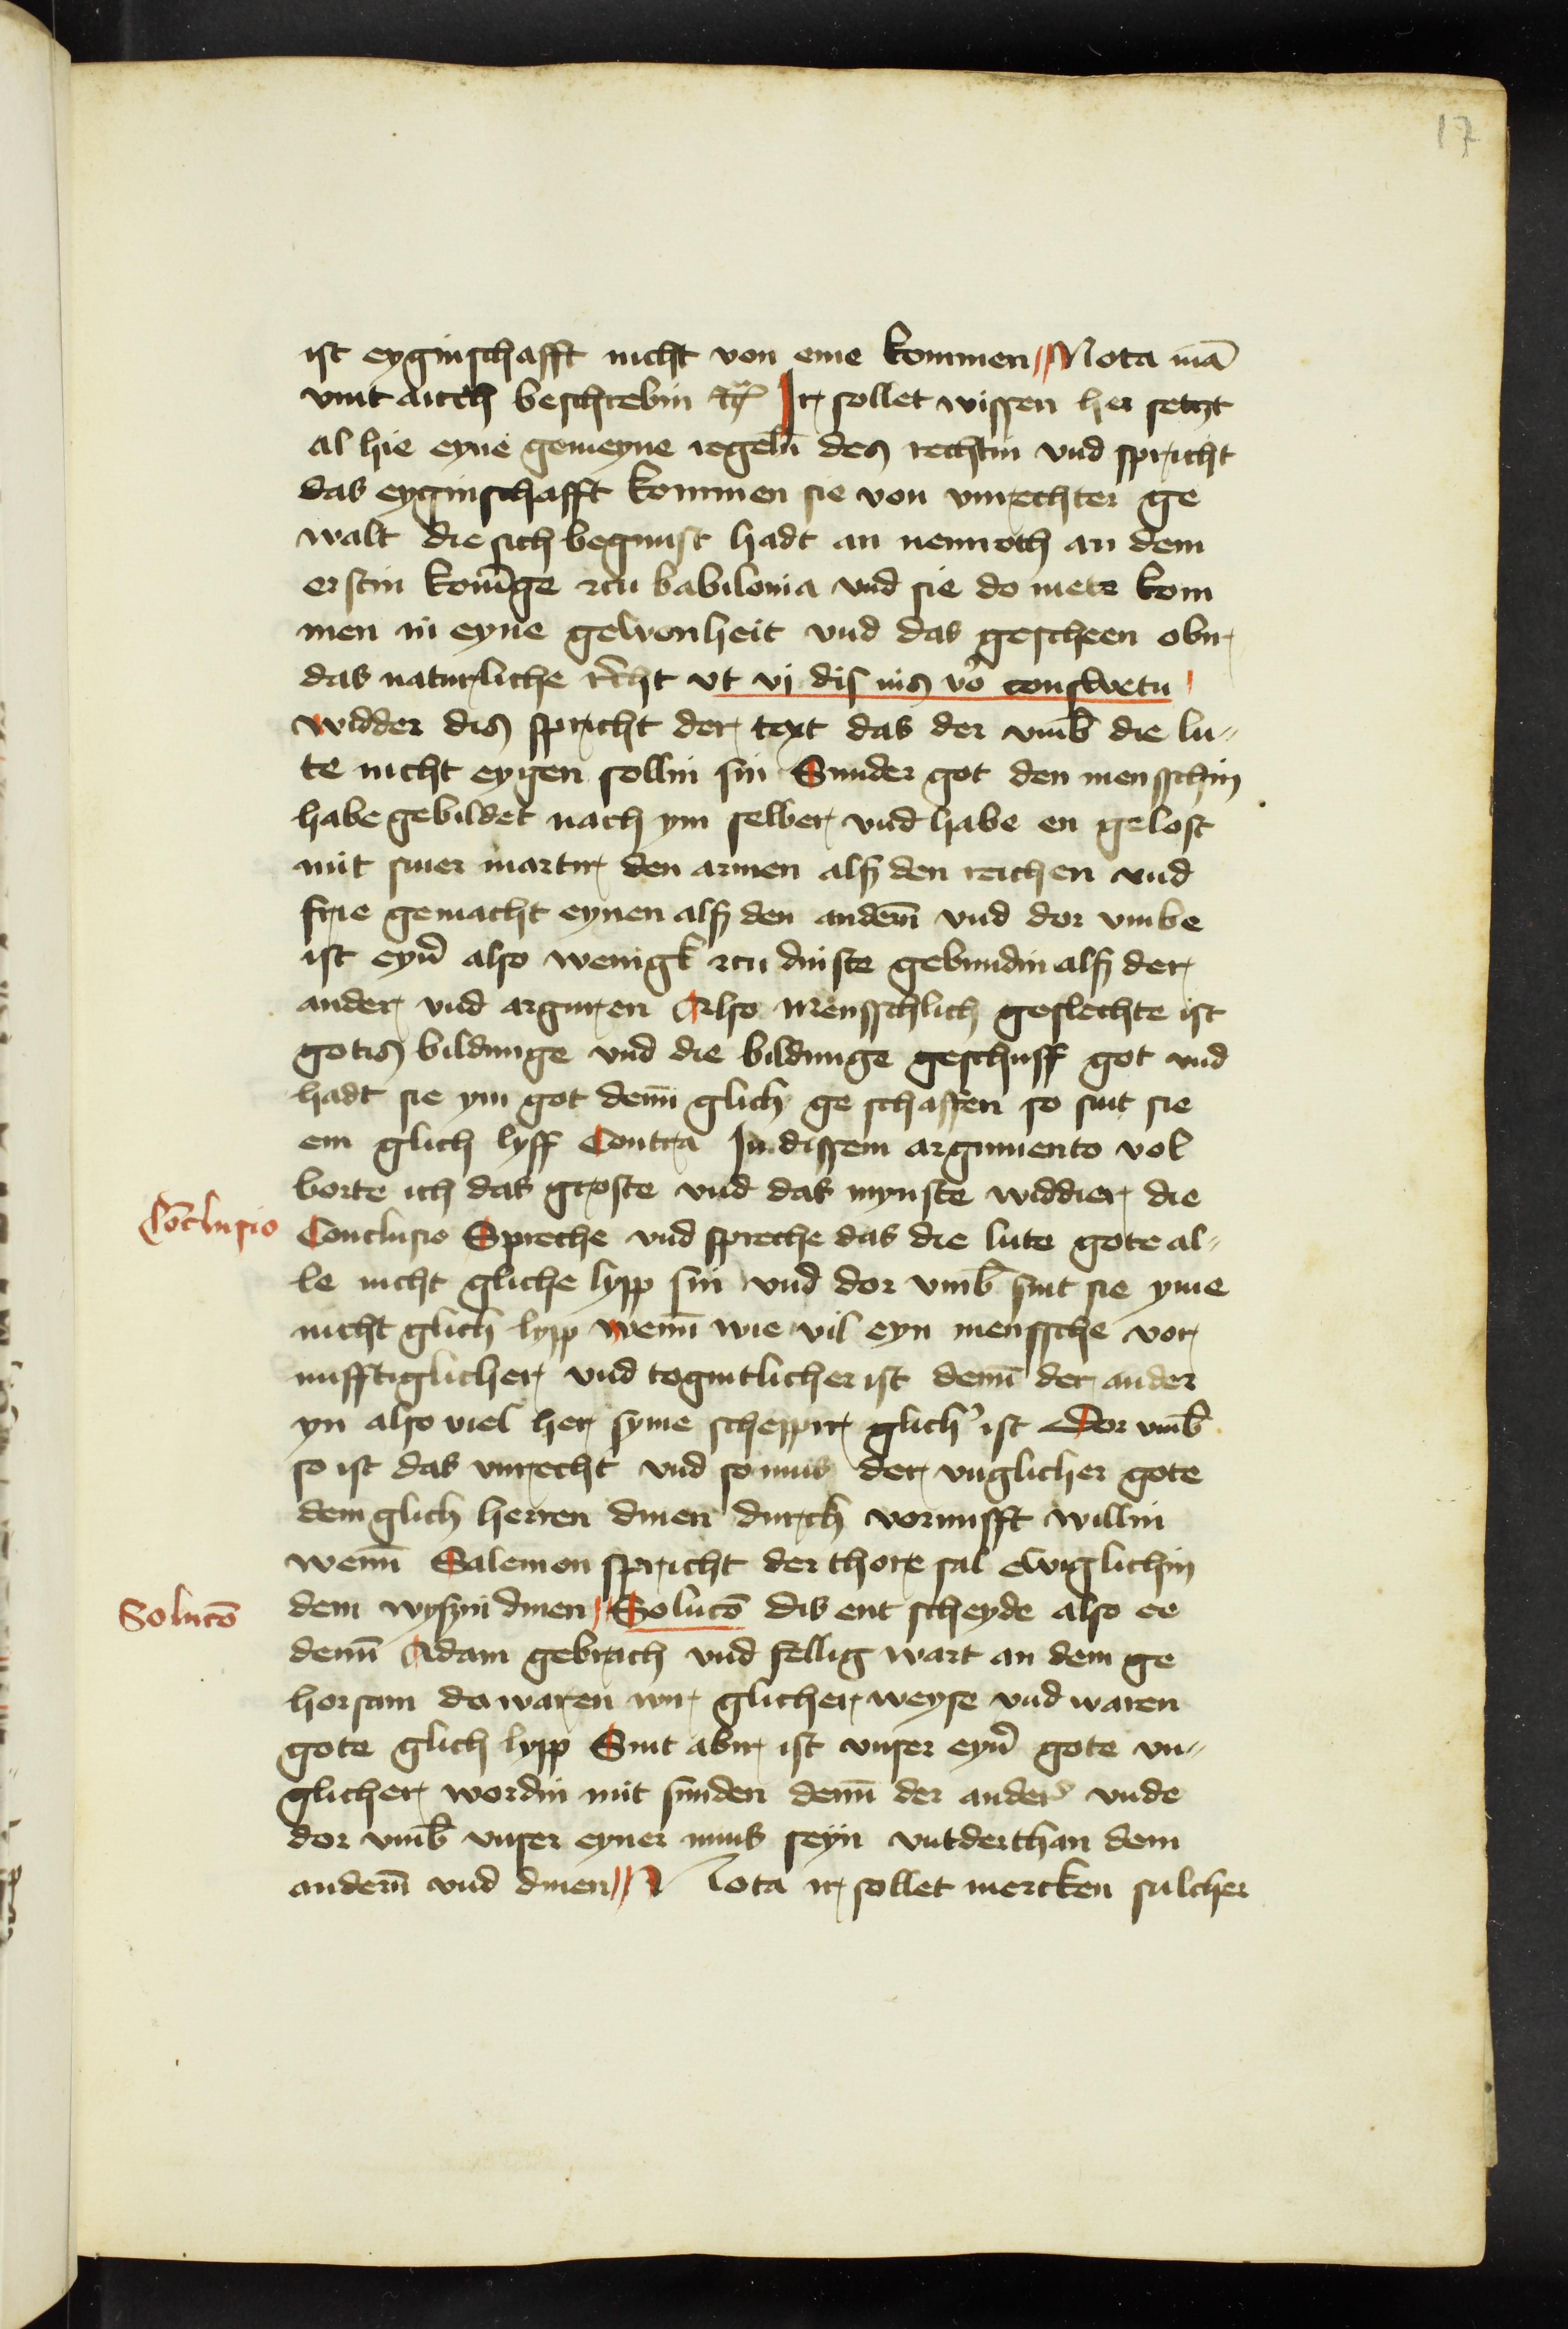 17
ist eyginschafft nicht von eme kommen Nota mā
vint auch beschrebin etc̄ Ir sollet wissen her setzt
al hie eyne gemeyne regeln̄ des rechtin vnd spricht
das eyginschafft kommen sie von vnrechter ge
walt die sich begunst hadt an nemroth an dem
erstin konīge zcu babilonia vnd sie do mete kom
men in eyne gewonheit vnd das gescheen obir
das naturliche rēcht vt vj dis ius vo conswetu
widder dis spricht der text das der vmb̄ die lu-
te nicht eygen sollin sin Sunder got den mensschin
habe gebildet nach ym selber vnd habe en gelost
mit siner martir den armen als den reichen vnd
frie gemacht eynen als den andern̄ vnd dor vmbe
ist eyn̄ also wenigk zcu dinste gebundin als der
ander vnd arguiren Also mensschlich geslechte ist
gotis bildunge vnd die bildunge geschuff got vnd
hadt sie ym got denn̄ glich ge schaffen so sint sie
em glich lyff Contra In dissem argumento vol
borte ich das groste vnd das mynste widdier die
Cōclusio
Conclusio Spreche vnd spreche das die lute gote al-
le nicht gliche lypp sin vnd dor vmb̄ sint sie yme
nicht glich lypp wenn̄ wie vil eyn menssche vor
nufftiglicher vnd togintlicher ist denn̄ der ander
yn also viel her syme scheppir glich' ist Dor vmb̄
so ist das vnrecht vnd so mus der vnglicher gote
dem glich herren dinen durch vornufft willin
wenn̄ Salemon spricht der thore sal ewiglichin
Solucō
dem wyszin dinen Solucō dis ent scheyde also ee
denn̄ Adam gebrach vnd fellig wart an dem ge
horsam do waren wir glicher weyse vnd waren
gote glich lypp Sint abir ist vnser eyn̄ gote vn-
glicher wordin mit sunden denn̄ der ander vnde
dor vmb̄ vnser eyner mus seyn vntderthan dem
andern̄ vnd dinen Nota ir sollet mercken sulcher